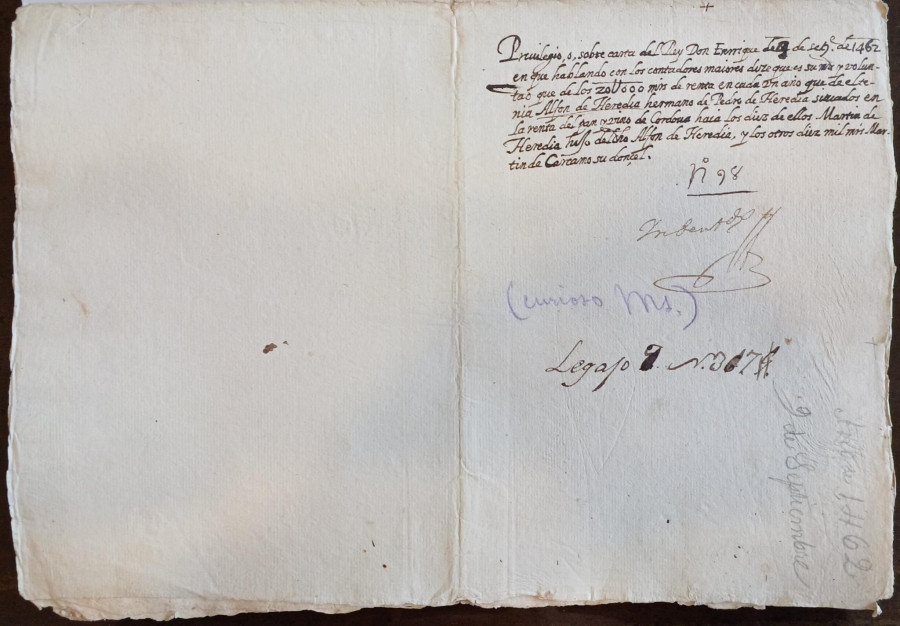 Privilegio, o, sobre carta del Rey Don Enrrique de 9 de seti.e de 1462
en que hablando con los contadores maiores dize que es su mrd y volun-
tad que de los 20U000 mrs de renta en cada un año que de el te-
nia Alfon de Heredia hermano de Pedro de Heredia situados en
la renta del pan y vino de Cordova haia los diez de ellos Martin de
Heredia hijo del dho Alfon de Heredia, y los otros diez mil mrs Mar-
tin de Carcamo su donçel.
Nº 98
(curioso Ms.)
Legajo 9. N. 367
9 de Septiembre
1462